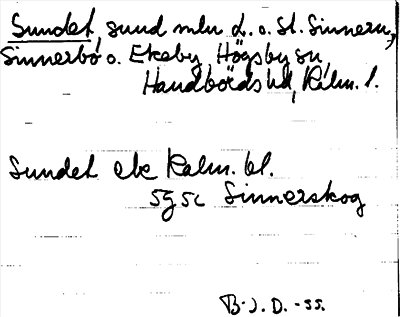 Sundet, sund mln L. o. St. Sinnern,
Sinnerbo o. Ekeby, Högsby sn,
Handbörds hd, Kalm. l.
Sundet ek Kalm. bl.
5g5c Sinnerskog
B.J.D. -55.